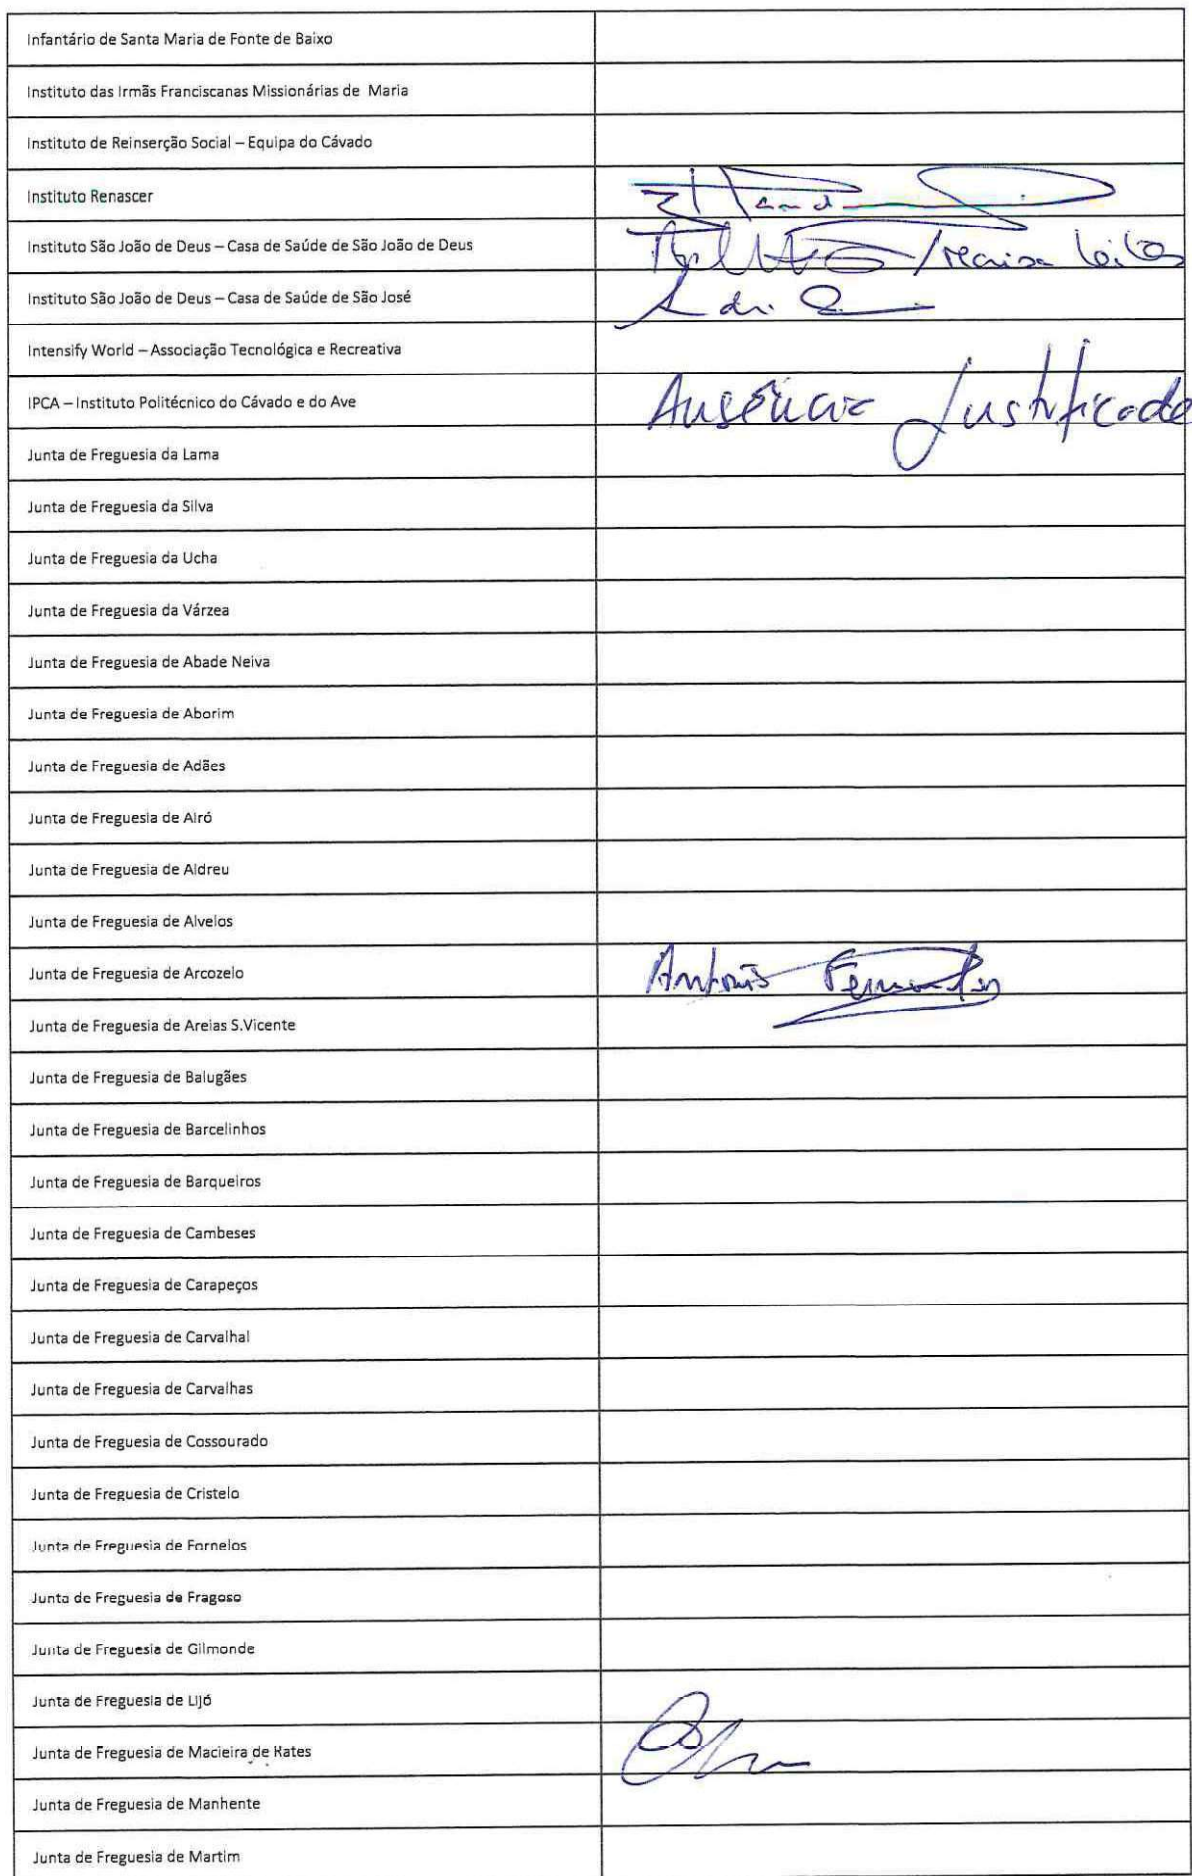 Infantário de Santa Maria de Fonte de Baixo
Instituto das Irmãs Franciscanas Missionárias de Maria
Instituto de Reinserção Social – Equipa do Cávado
Instituto Renascer
Instituto São João de Deus – Casa de Saúde de São João de Deus
Instituto São João de Deus – Casa de Saúde de São José
Intensify World – Associação Tecnológica e Recreativa
IPCA – Instituto Politécnico do Cávado e do Ave Ausência Justificada
Junta de Freguesia da Lama
Junta de Freguesia da Silva
Junta de Freguesia da Ucha
Junta de Freguesia da Várzea
Junta de Freguesia de Abade Neiva
Junta de Freguesia de Aborim
Junta de Freguesia de Adães
Junta de Freguesia de Airó
Junta de Freguesia de Aldreu
Junta de Freguesia de Alvelos
Junta de Freguesia de Arcozelo António Fernandes
Junta de Freguesia de Areias S.Vicente
Junta de Freguesia de Balugães
Junta de Freguesia de Barcelinhos
Junta de Freguesia de Barqueiros
Junta de Freguesia de Cambeses
Junta de Freguesia de Carapeços
Junta de Freguesia de Carvalhal
Junta de Freguesia de Carvalhas
Junta de Freguesia de Cossourado
Junta de Freguesia de Cristelo
Junta de Freguesia de Fornelos
Junta de Freguesia de Fragoso
Junta de Freguesia de Gilmonde
Junta de Freguesia de Lijó
Junta de Freguesia de Macieira de Rates
Junta de Freguesia de Manhente
Junta de Freguesia de Martim